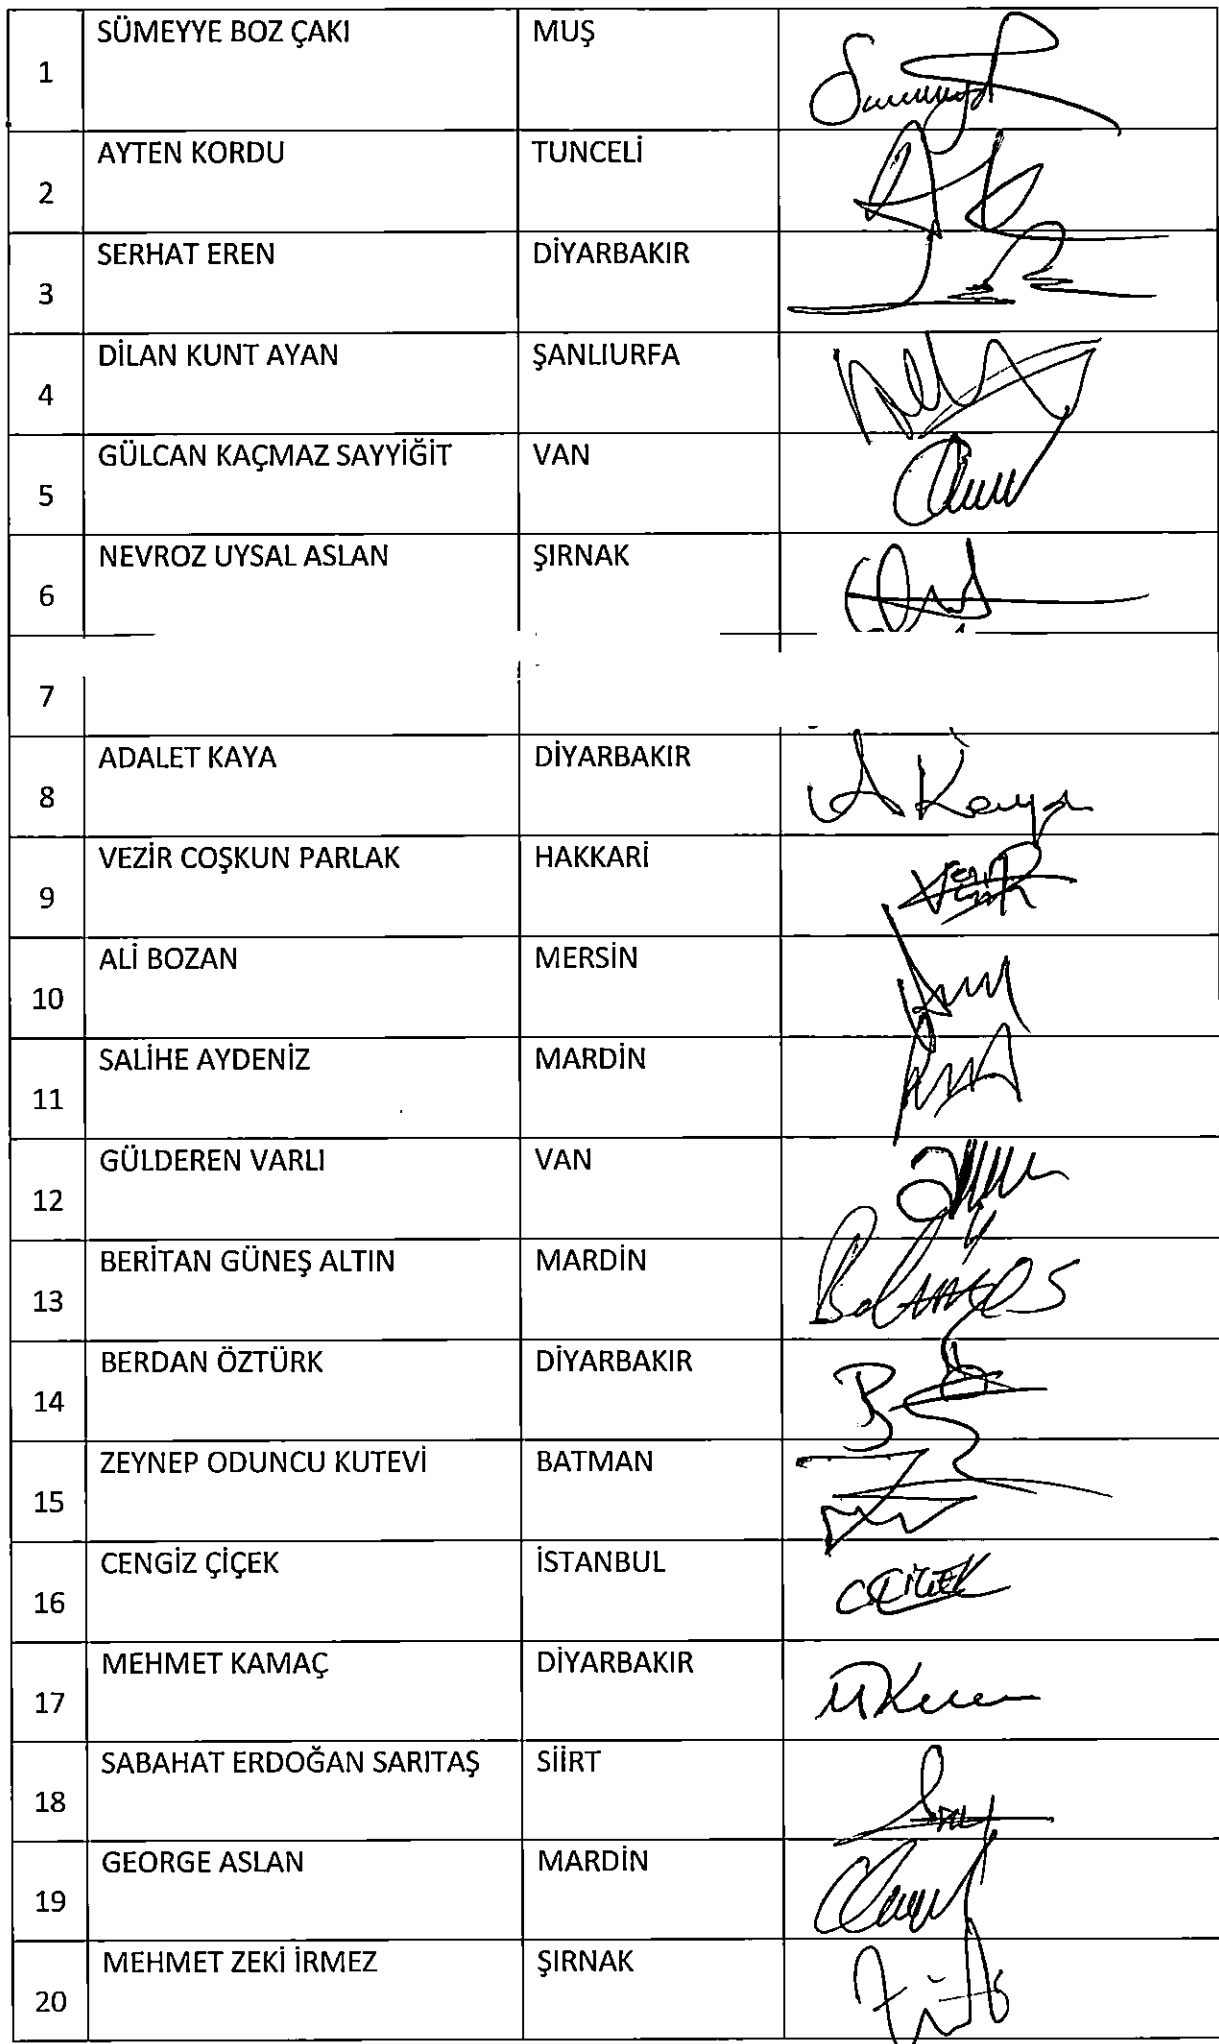 1 SÜMEYYE BOZ ÇAKI MUŞ
2 AYTEN KORDU TUNCELİ
3 SERHAT EREN DİYARBAKIR
4 DİLAN KUNT AYAN ŞANLIURFA
5 GÜLCAN KAÇMAZ SAYYİĞİT VAN
6 NEVROZ UYSAL ASLAN ŞIRNAK
7
8 ADALET KAYA DİYARBAKIR A Kaya
9 VEZİR COŞKUN PARLAK HAKKARİ
10 ALİ BOZAN MERSİN
11 SALİHE AYDENİZ MARDİN
12 GÜLDEREN VARLI VAN
13 BERİTAN GÜNEŞ ALTIN MARDİN
14 BERDAN ÖZTÜRK DİYARBAKIR
15 ZEYNEP ODUNCU KUTEVİ BATMAN
16 CENGİZ ÇİÇEK İSTANBUL CÇİÇEK
17 MEHMET KAMAÇ DİYARBAKIR
18 SABAHAT ERDOĞAN SARITAŞ SİİRT
19 GEORGE ASLAN MARDİN
20 MEHMET ZEKİ İRMEZ ŞIRNAK